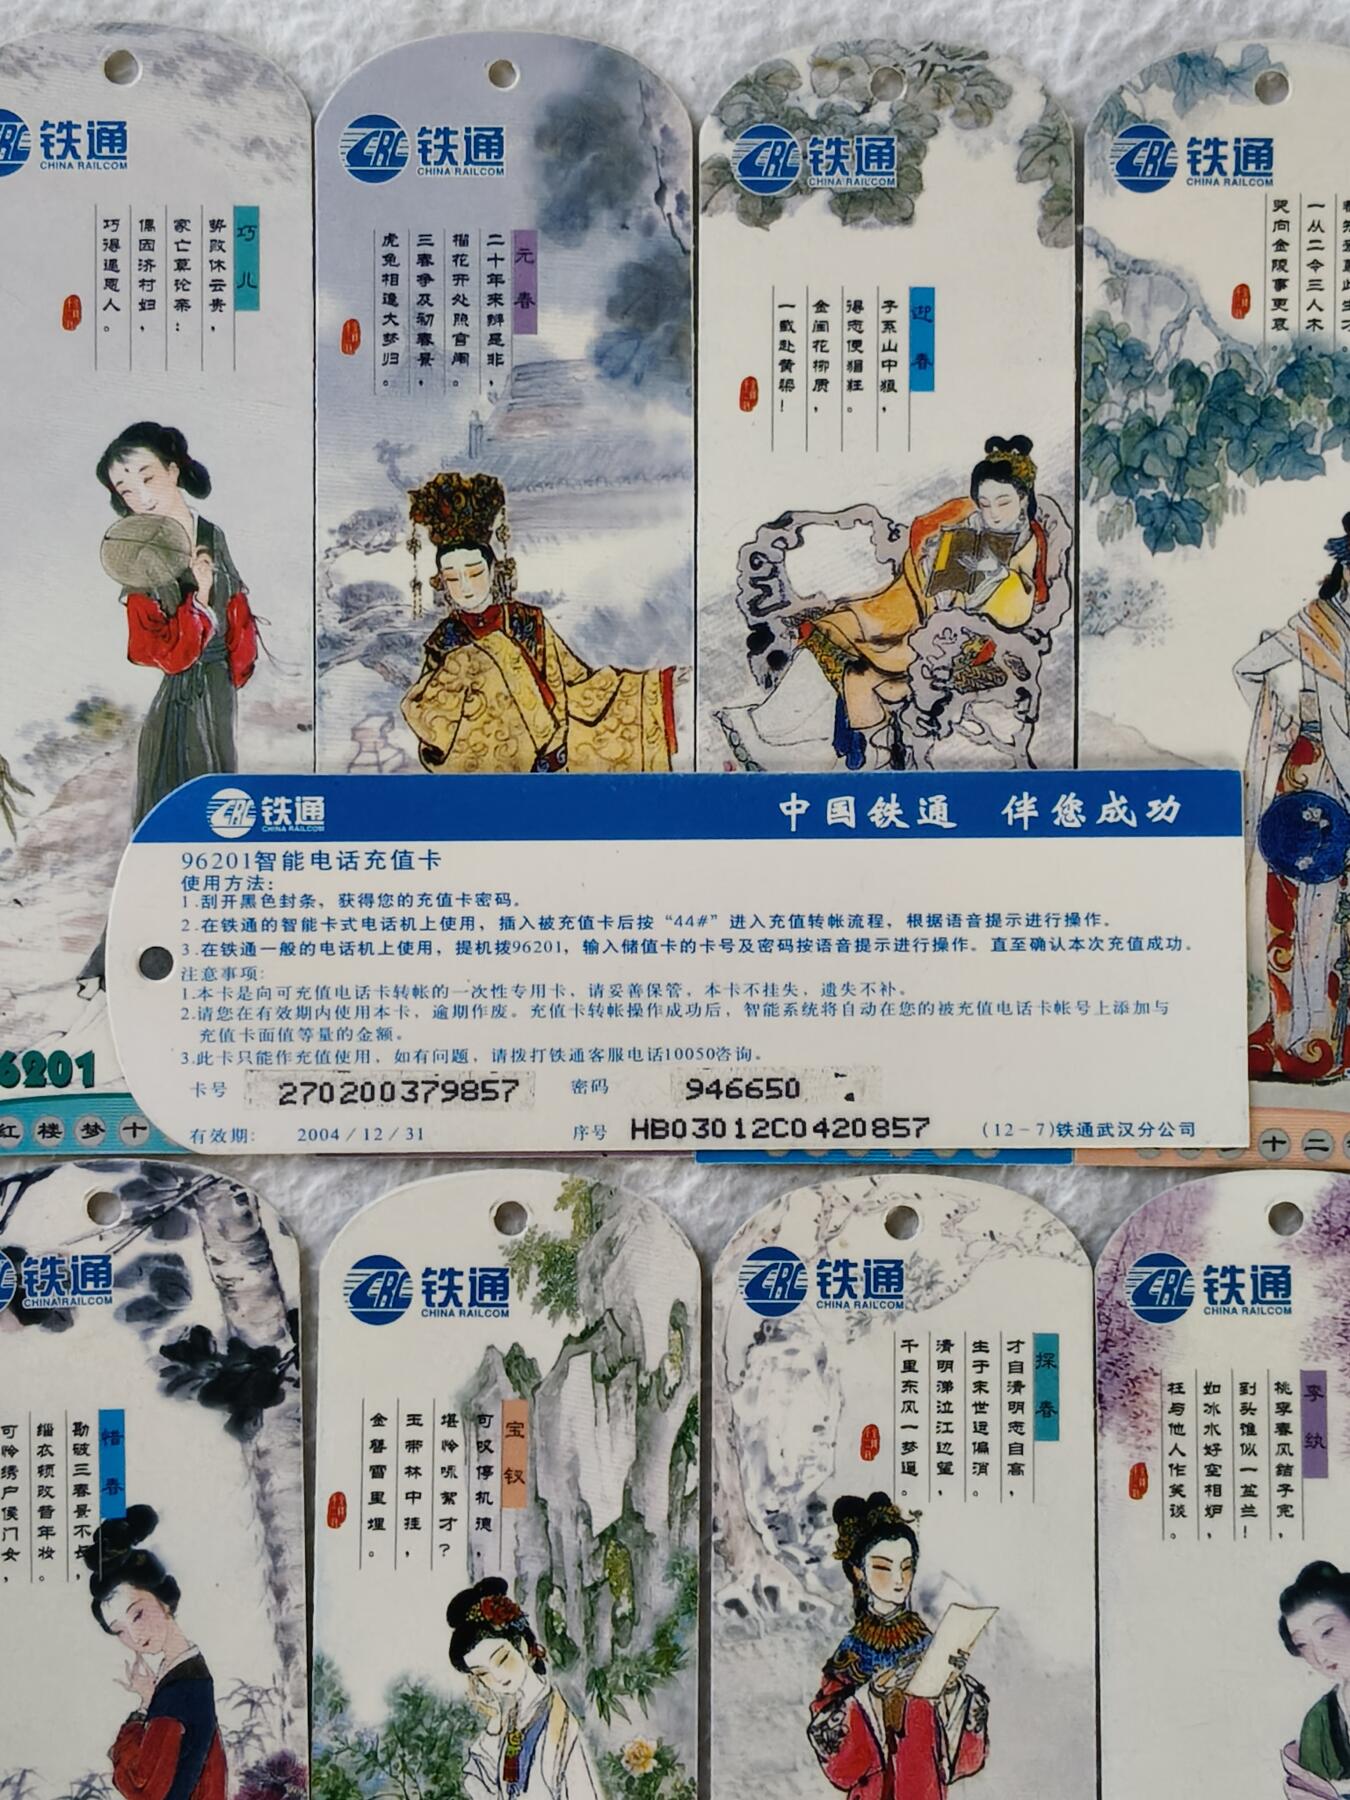 铁通
CHINA RAILCOM
巧儿
势败休云贵，
家亡莫论亲；
偶因济村妇，
巧得遇恩人。
铁通
CHINA RAILCOM
元春
二十年来辨是非，
榴花开处照宫闱。
三春争及初春景，
虎兔相逢大梦归。
铁通
CHINA RAILCOM
迎春
子系山中狼，
得志便猖狂。
金闺花柳质，
一载赴黄粱！
铁通
CHINA RAILCOM
一从二令三人木，
哭向金陵事更哀。
铁通
CHINA RAILCOM
中国铁通 伴您成功
96201智能电话充值卡
使用方法：
1.刮开黑色封条，获得您的充值卡密码。
2.在铁通的智能卡式电话机上使用，插入被充值卡后按“44#”进入充值转帐流程，根据语音提示进行操作。
3.在铁通一般的电话机上使用，提机拨96201，输入储值卡的卡号及密码按语音提示进行操作。直至确认本次充值成功。
注意事项：
1.本卡是向可充值电话卡转帐的一次性专用卡，请妥善保管，本卡不挂失，遗失不补。
2.请您在有效期内使用本卡，逾期作废。充值卡转帐操作成功后，智能系统将自动在您的被充值电话卡帐号上添加与
充值卡面值等量的金额。
3.此卡只能作充值使用，如有问题，请拨打铁通客服电话10050咨询。
卡号 270200379857 密码 946650
有效期： 2004/12/31 序号 HB03012C0420857 (12-7)铁通武汉分公司
6201
红楼梦十
十二
铁通
CHINA RAILCOM
惜春
勘破三春景不长，
缁衣顿改昔年妆。
可怜绣户侯门女，
铁通
CHINA RAILCOM
宝钗
可叹停机德，
堪怜咏絮才？
玉带林中挂，
金簪雪里埋。
铁通
CHINA RAILCOM
探春
才自清明志自高，
生于末世运偏消。
清明涕泣江边望，
千里东风一梦遥。
铁通
CHINA RAILCOM
李纨
桃李春风结子完，
到头谁似一盆兰！
如冰水好空相妒，
枉与他人作笑谈。